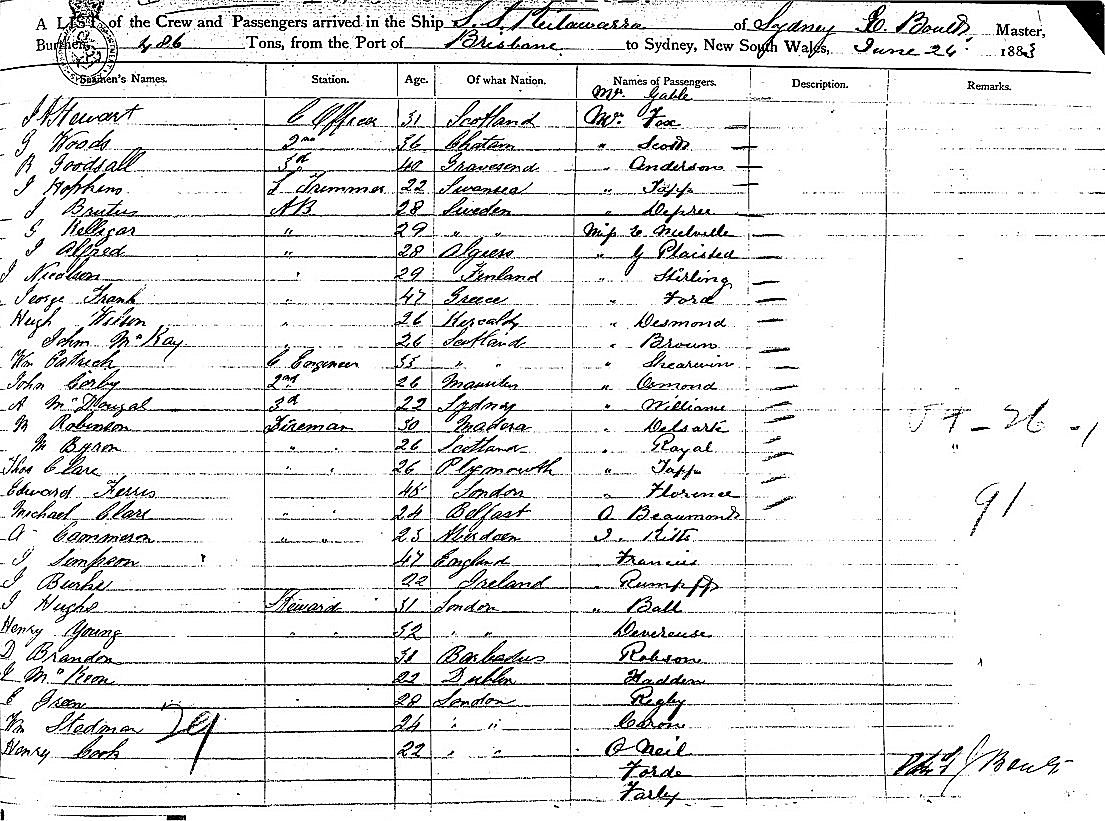 A LIST of the Crew and Passengers arrived in the Ship S.S. of Sydney E. Boult Master,
Burthen 486 Tons, from the Port of Brisbane to Sydney, New South Wales, June 26 1883
Seamen's Names. Station. Age. Of what Nation. Names of Passengers. Description. Remarks.
Mr. Gable
Stewart C Officer 31 Scotland Mr. Fox
G Woods 2nd 36 Chatam " Scott —
R Goodsall 3rd 40 Gravesend " Anderson —
J Hopkins Trimmer 22 Swansea " Tapp —
J Brutus AB 28 Sweden " Depree
G Kelligar " 29 " " Miss Melville —
J Alfred " 28 Algiers " G Plaisted —
J Nicolson " 29 Finland " Stirling —
George Frank " 47 Greece " Ford —
Hugh Wilson " 26 " Desmond —
John McKay 26 Scotland " Brown —
Wm Patrick C Engineer 35 " " " —
John Corby 2nd 26 " Ormond —
A McDougal 3rd 22 Sydney " Williams
M Robinson Fireman 30 Madera " Delsarte
M Byron " " 26 Scotland " Royal
Thos Clare " " 26 Plymouth " Tapp
Edward Ferris 48 London " Florence 91
Michael Clare 24 Belfast O Beaumonds
A Cammeron " " 23 Aberdeen
Simpson 47 England Francis
J Burke 22 Ireland " Rumpff
J Hughs Steward 31 London " Ball
Henry Young " " 32 " " Devereuse
D Brandon 31 Barbadus Robson
McKeon 22 Dublin Hadden
E Green 28 London Rigby
Wm Stedman 29 24 " " Caron
Henry Cook 22 " " O Neil
Forde Boult
Farly